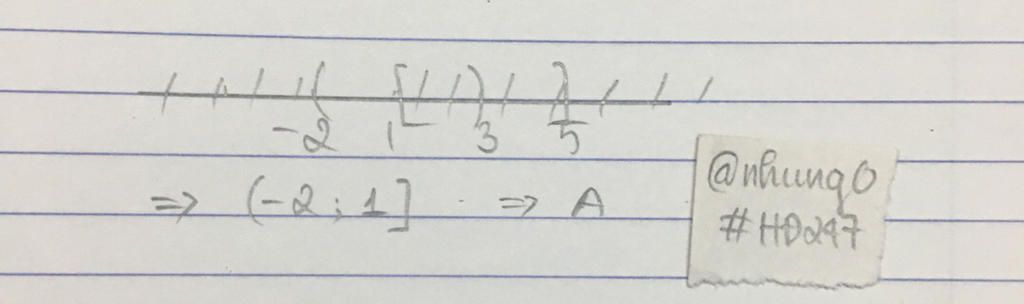 -2 ( [ 1 ) 3 ] 5
=> (-2 ; 1] => A
@nhung0
#HD247